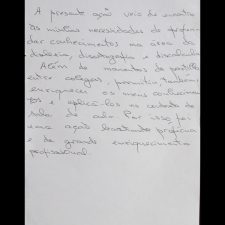 A presente ação veio de encontro
às minhas necessidades de aprofun
dar conhecimentos na área da
dislexia, disortografia e discalculia.
Além de momentos de partilha
entre colegas, permitiu também
enriquecer os meus conhecimen
tos e aplicá-los no contexto de
sala de aula. Por isso foi
uma ação bastante profícua
e de grande enriquecimento
profissional.